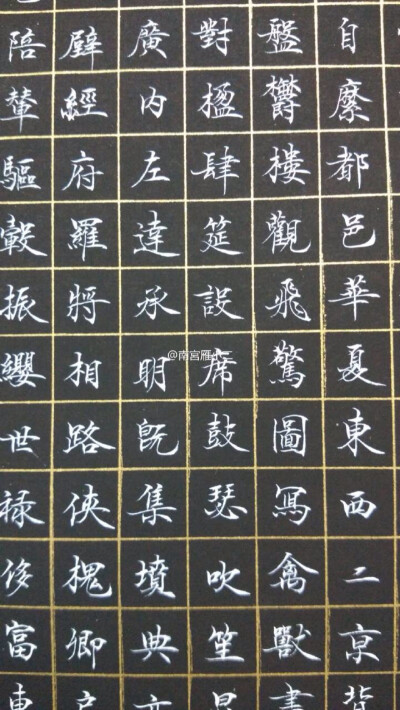 自縻都邑華夏東西二京背
盤鬱樓觀飛驚圖寫禽獸畫
對楹肆筵設席鼓瑟吹笙
廣内左達承明既集墳典亦
壁經府羅將相路俠槐卿戶
陪輦驅轂振纓世禄侈富車
@南宮雁